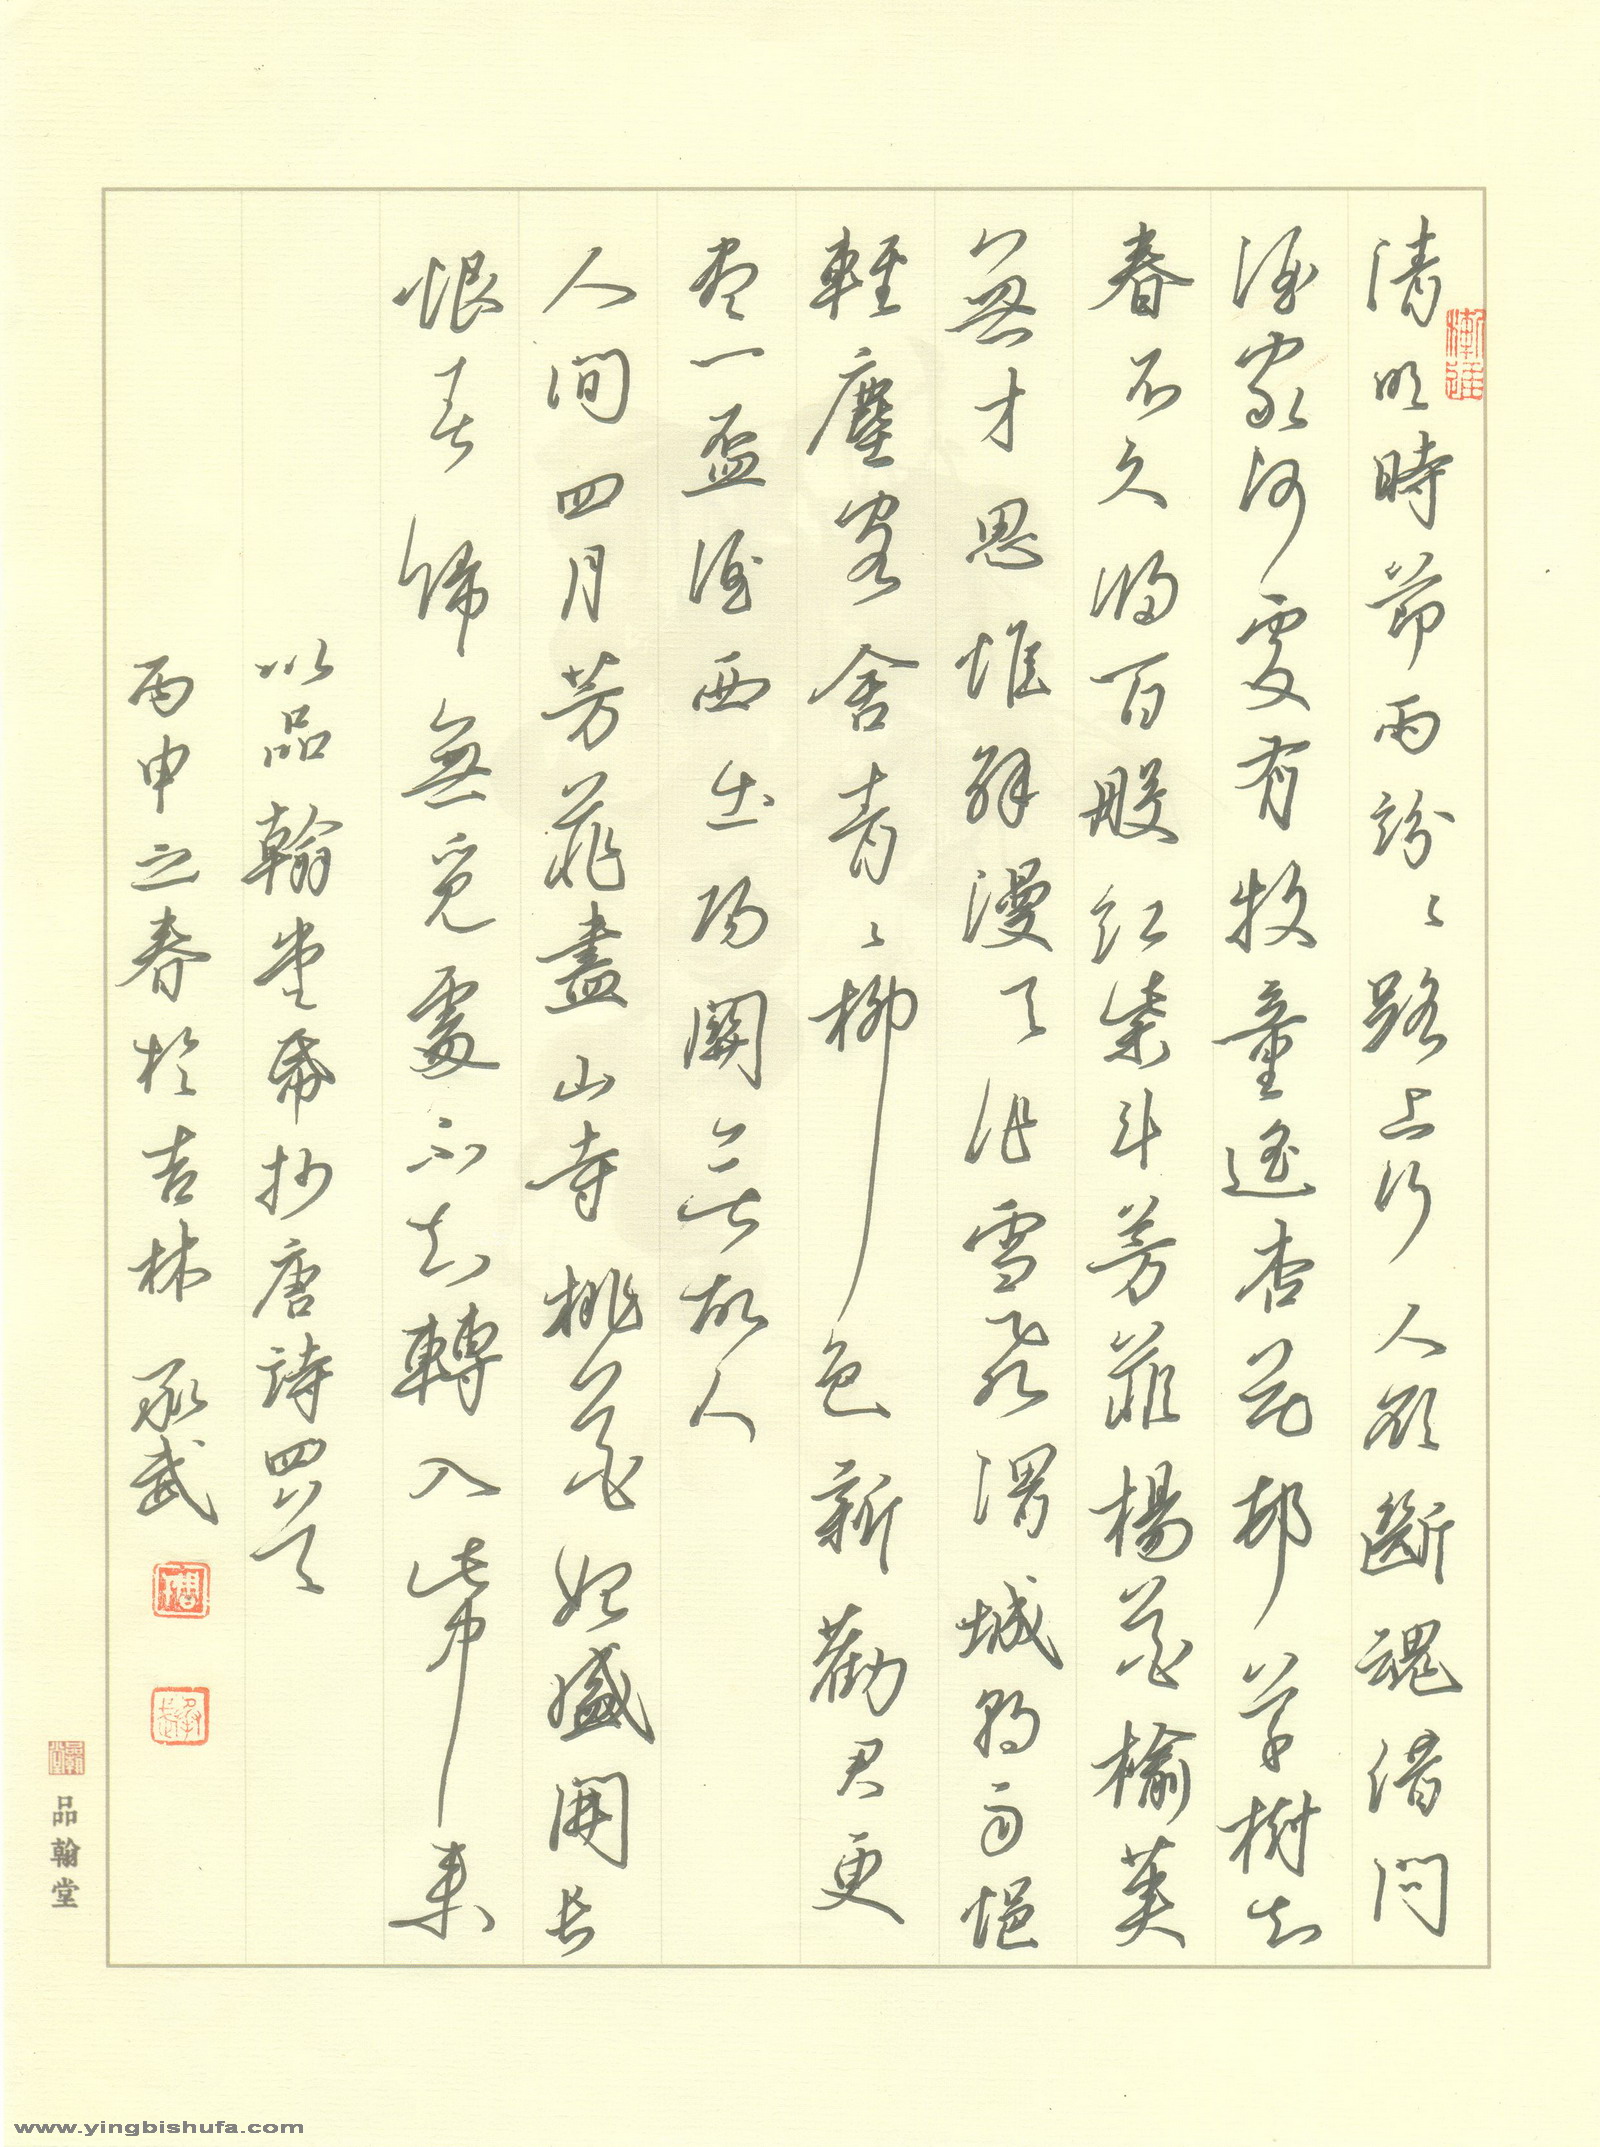 清明時節雨紛〻路上行人欲斷魂借問
酒家何處有牧童遙杏花邨草樹知
春不久歸百般紅紫斗芳菲楊花榆莢
無才思惟解漫天作雪飛渭城朝雨浥
輕塵客舍青〻柳色新勸君更
盡一盃酒西出陽關無故人
人間四月芳菲盡山寺桃花始盛開長
恨春歸無覓處不知轉入此中來
以品翰堂帋抄唐詩四首
丙申之春於吉林 承武
品翰堂
www.yingbishufa.com